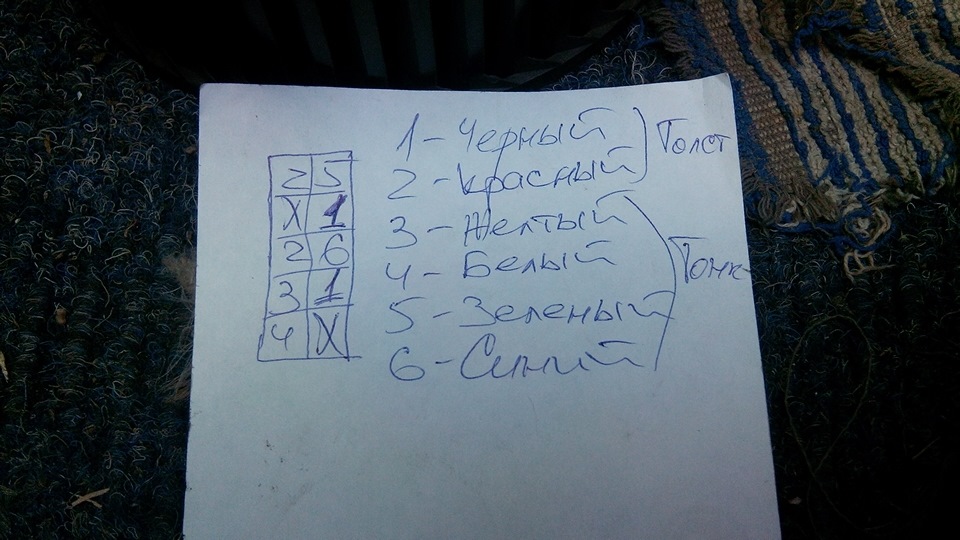 2 5
X 1
2 6
3 1
4 X
1 - Черный
2 - Красный
Толст
3 - Желтый
4 - Белый
5 - Зеленый
6 - Синий
Тонк